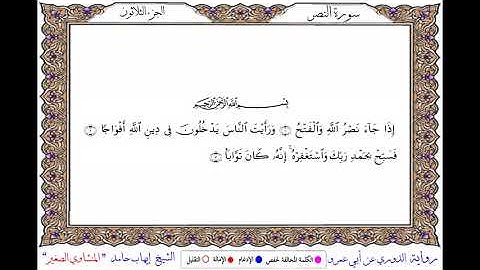 سورة النصر
الجزء الثلاثون
بِسْمِ اللَّهِ الرَّحْمَٰنِ الرَّحِيمِ
إِذَا جَآءَ نَصْرُ اللَّهِ وَالْفَتْحُ ۝١ وَرَأَيْتَ النَّاسَ يَدْخُلُونَ فِى دِينِ اللَّهِ أَفْوَاجًا ۝٢
فَسَبِّحْ بِحَمْدِ رَبِّكَ وَاسْتَغْفِرْهُ ۚ إِنَّهُۥ كَانَ تَوَّابًا ۝٣
رواية الدوري عن أبي عمرو
الكلمة المخالفة لحفص
الإدغام
الإمالة
التقليل
الشيخ إيهاب حامد "المنشاوي الصغير"